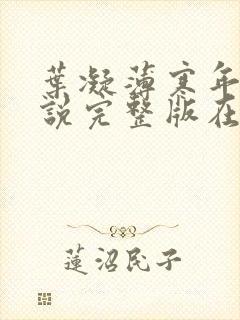 葉凝薄寒年
說完整版在
蓮沼民子